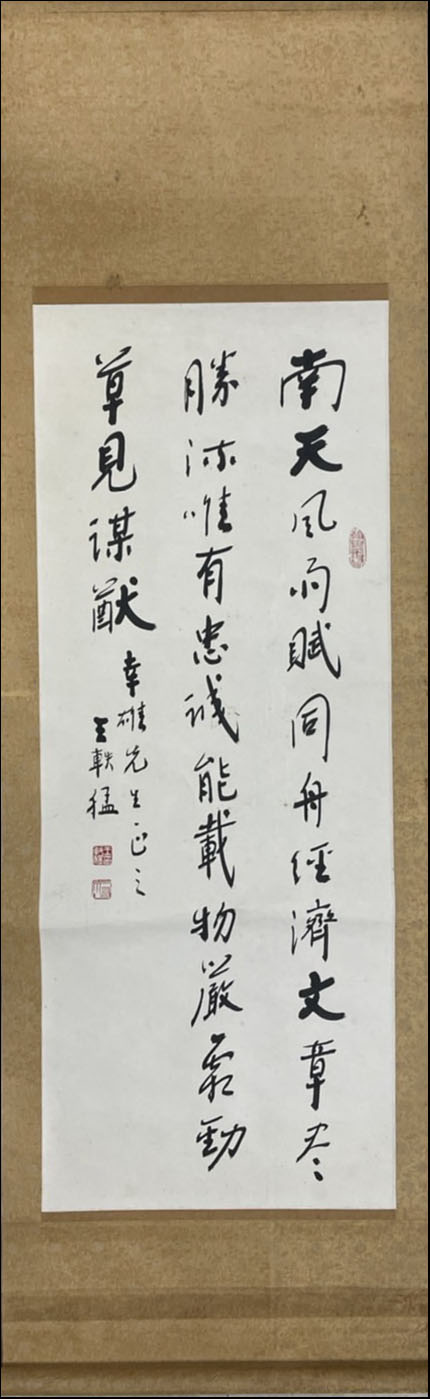 南天風雨賦同舟經濟文章尽
勝流唯有忠誠能載物嚴霜勁
草見謀猷
幸雄先生正之
王軼猛